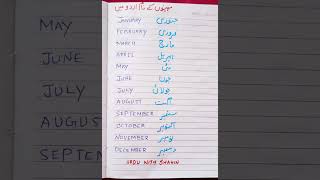 مہینوں کے نام اردو میں
JANUARY جنوری
FEBRUARY فروری
MARCH مارچ
APRIL اپریل
MAY مئی
JUNE جون
JULY جولائی
AUGUST اگست
SEPTEMBER ستمبر
OCTOBER اکتوبر
NOVEMBER نومبر
DECEMBER دسمبر
URDU WITH SHAHIN
MAY
JUNE
JULY
AUGUS
SEPTEM